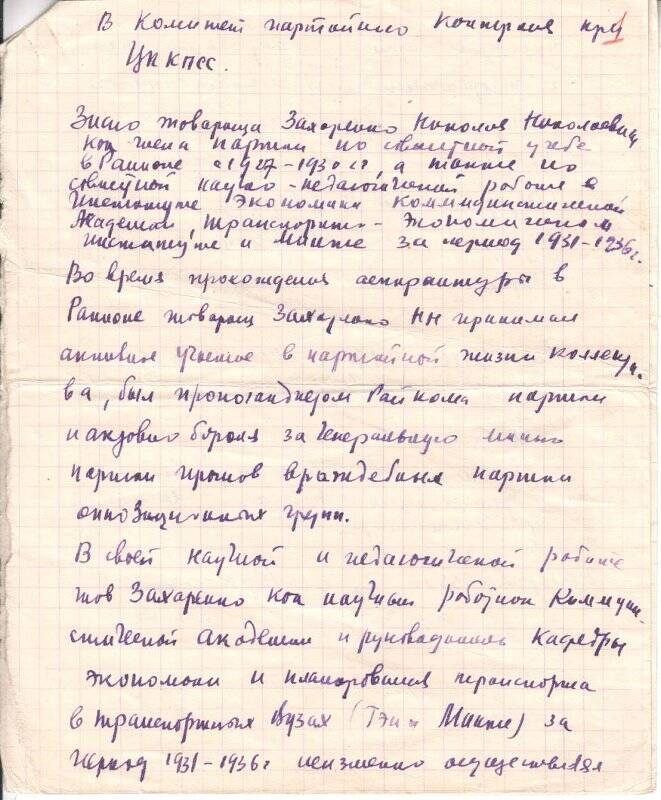 В Комитет партийного Контроля при
ЦК КПСС.
1
Знаю товарища Захаренко Николая Николаевича
как члена партии по совместной учебе
в Ранионе с 1927-1930 гг, а также по
совместной научно-педагогической работе в
Институте Экономики Коммунистической
Академии, Транспортно-Экономическом
институте и Миите за период 1931-1936 г.
Во время прохождения аспирантуры в
Ранионе товарищ Захаренко НН принимал
активное участие в партийной жизни коллекти-
ва, был пропагандистом Райкома партии
и активно боролся за Генеральную линию
партии против враждебных партии
оппозиционных групп.
В своей научной и педагогической работе
тов Захаренко как научный работник Коммуни-
стической Академии и руководитель Кафедры
экономики и планирования транспорта
в транспортных Вузах (Тэи и Миите) за
период 1931-1936 г неизменно осуществлял